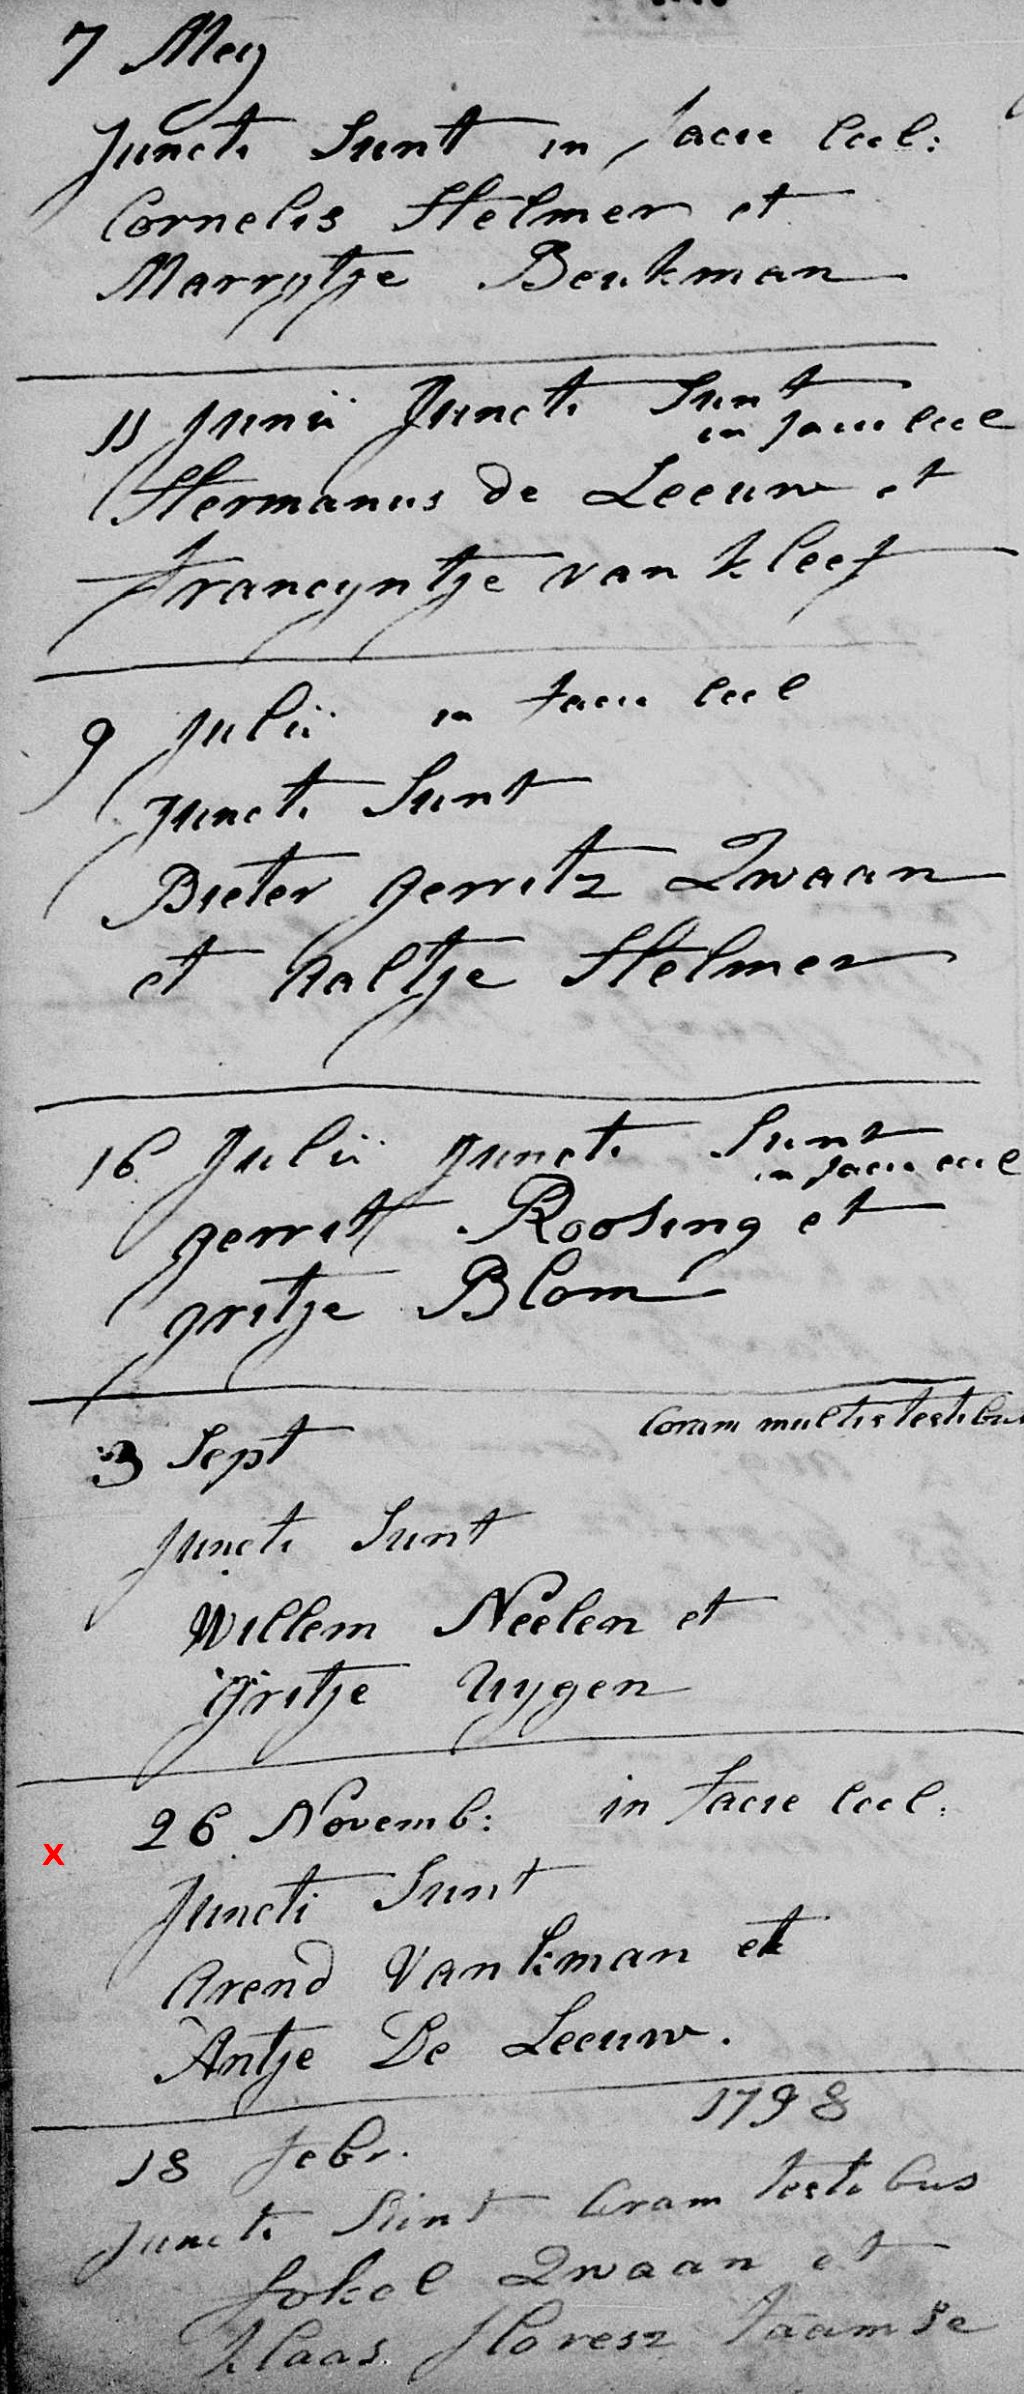 7 Mey
Juncti Sunt in facie Eccl:
Cornelis Stelmer et
Marrytje Beukman
11 Junii Juncti Sunt
in facie Eccl
Hermanus de Leeuw et
Francyntje van Kleef
9 Julii in facie Eccl
Juncti Sunt
Pieter Gerritz Zwaan
et Aaltje Stelmer
16 Julii Juncti Sunt
in facie Eccl
Gerrit Roosing et
Gritje Blom
3 Sept Coram multis testibus
Juncti Sunt
Willem Neelen et
Gritje Uygen
26 Novemb: in facie Eccl.
x
Juncti Sunt
Arend Vankman et
Antje De Leeuw.
1798
18 febr.
Juncti Sunt Coram testibus
Zwaan et
Klaas Floresz Taamse